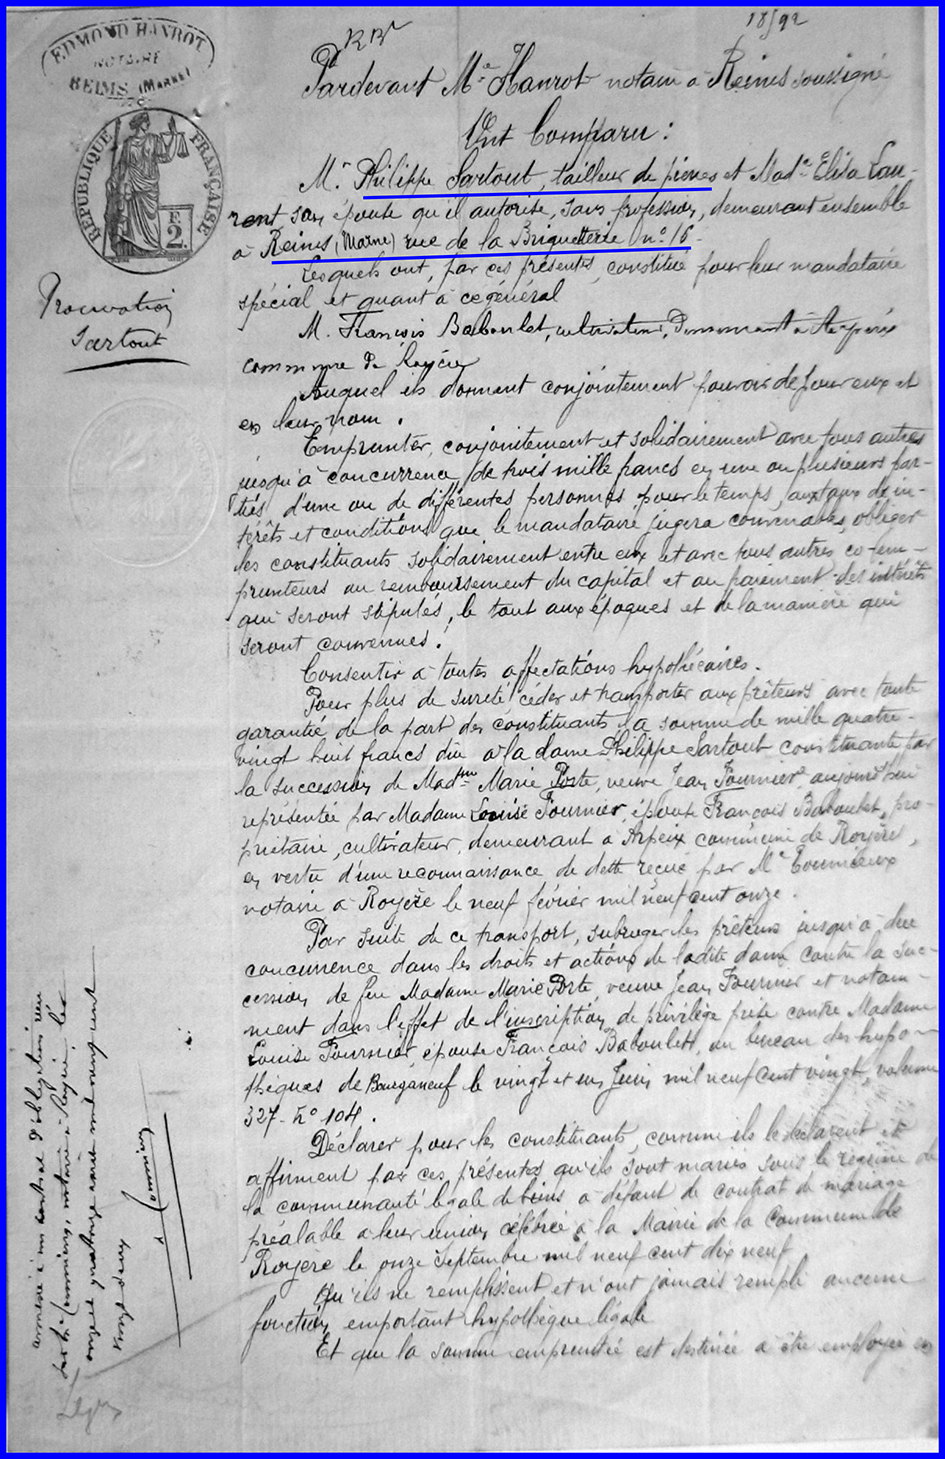 18/92
EDMOND HANROT
NOTAIRE
REIMS (MARNE)
RÉPUBLIQUE FRANÇAISE
2 F.
Procuration
Sartout
Pardevant Me Hanrot notaire à Reims soussigné
Ont Comparu :
Mr Philippe Sartout, tailleur de pierres et Made Elisa Lau-
rent son épouse qu'il autorise, sans profession, demeurant ensemble
à Reims (Marne) rue de la Briquetterie no 16.
Lesquels ont, par ces présentes, constitué pour leur mandataire
spécial et quant à ce général
M. François Baboulet, cultivateur, Demeurant à Arpeix
commune de Royère
Auquel ils donnent conjointement pouvoir de pour eux et
en leur nom.
Emprunter, conjointement et solidairement avec tous autres
jusqu'à concurrence de trois mille francs en une ou plusieurs par-
ties d'une ou de différentes personnes pour le temps, aux taux d'in-
térêts et conditions que le mandataire jugera convenables, obliger
les constituants solidairement entre eux et avec tous autres co-em-
prunteurs au remboursement du capital et au paiement des intérêts
qui seront stipulés, le tout aux époques et de la manière qui
seront convenues.
Consentir à toutes affectations hypothécaires.
Pour plus de sureté céder et transporter aux prêteurs avec toute
garantie de la part des constituants la somme de mille quatre-
vingt huit francs due à la dame Philippe Sartout constituante par
la succession de Madame Marie Porte, veuve Jean Fournier, aujourd'hui
représentée par Madame Louise Fournier, épouse François Baboulet, pro-
priétaire, cultivateur, demeurant à Arpeix commune de Royère,
en vertu d'une reconnaissance de dette reçue par Me
notaire à Royère le neuf février mil neuf cent onze.
Par suite de ce transport, subroger les prêteurs jusqu'à due
concurrence dans les droits et actions de ladite dame contre la suc-
cession de feu Madame Marie Porte veuve Jean Fournier et notam-
ment dans l'effet de l'inscription de privilège prise contre Madame
Louise Fournier épouse François Baboulet, au bureau des hypo-
thèques de Bourganeuf le vingt et un Juin mil neuf cent vingt, volume
327 - No 104.
Déclarer pour les constituants, comme ils le déclarent et
affirment par ces présentes qu'ils sont mariés sous le régime de
la communauté légale de biens à défaut de contrat de mariage
préalable à leur union célébrée à la Mairie de la Commune de
Royère le onze Septembre mil neuf cent dix neuf
Qu'ils ne remplissent et n'ont jamais rempli aucune
fonction emportant hypothèque légale
Et que la somme empruntée est destinée à être employée en
annexé à un contrat d'obligation reçu
notaire à Royère, les
onze et quatorze mil neuf cent
vingt deux